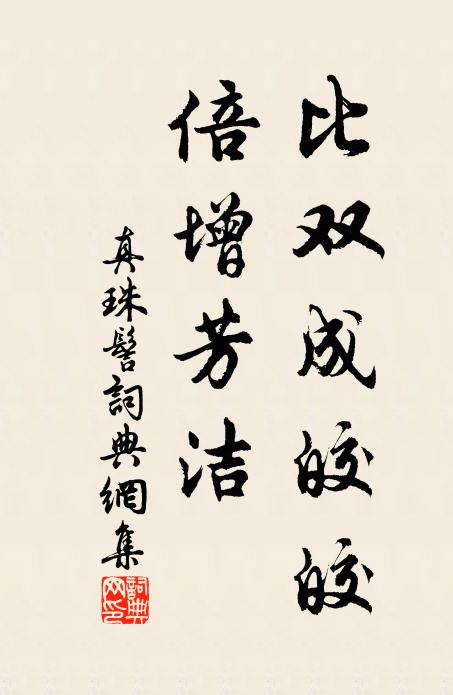 比双成皎皎
倍增芳洁
真珠髻詞典網集
詞典网印